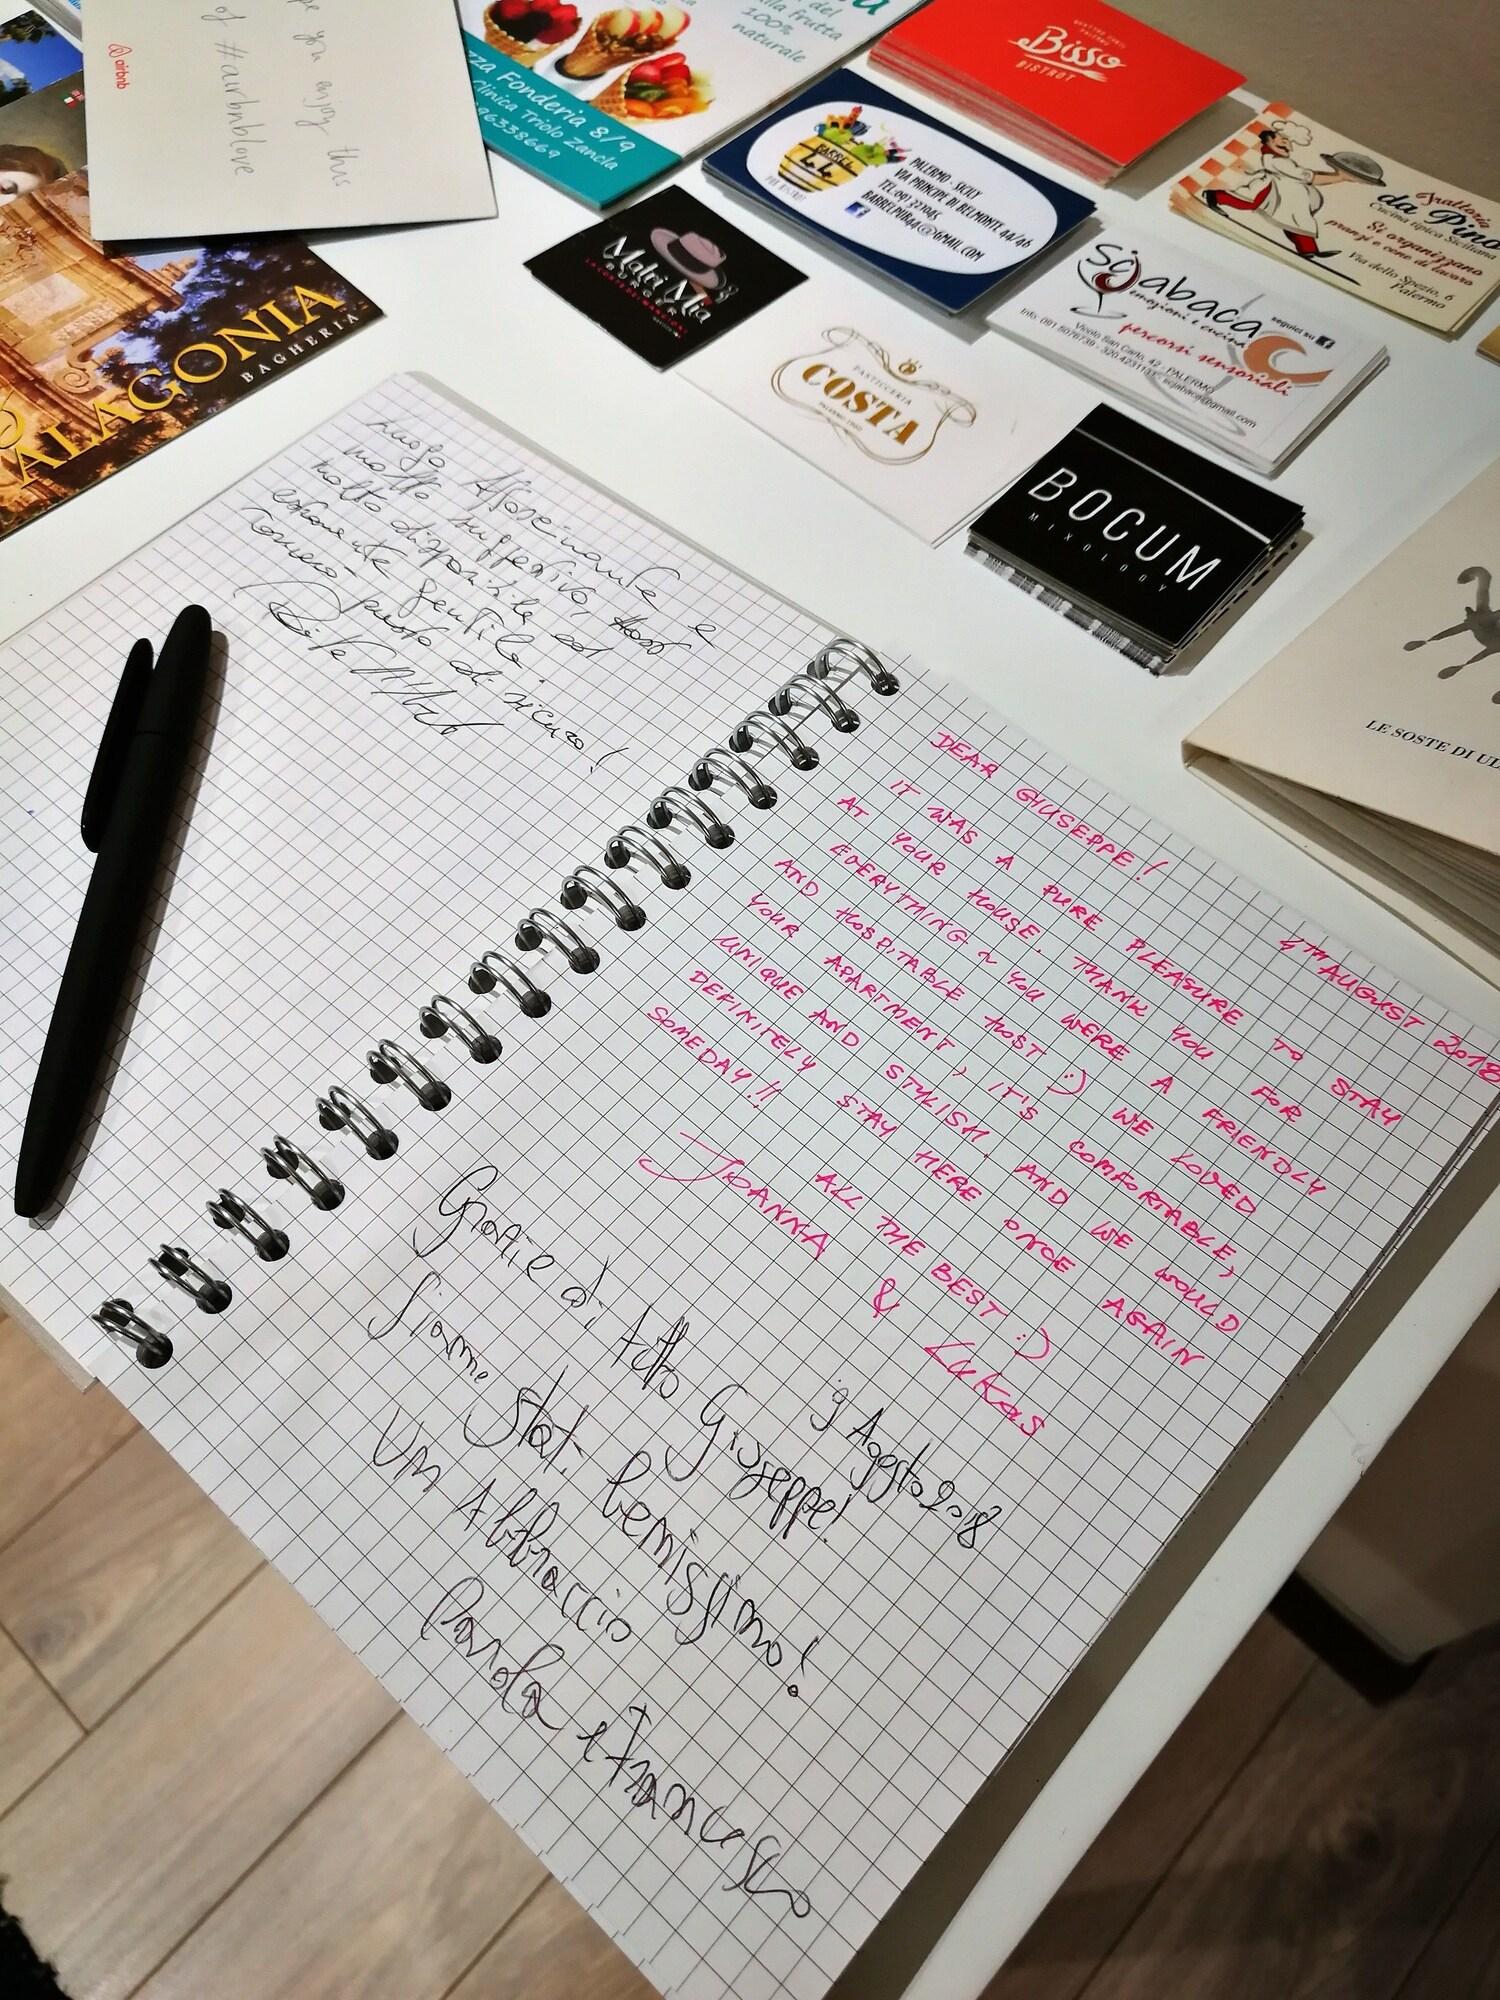 pe you enjoy this
of #airbnblove
airbnb
del
alla frutta
100%
naturale
za Fonderia 8/9
Clinica Triolo Zancla
96338669
QUATTRO CANTI
PALERMO
Bisso
BISTROT
BARREL
PUB BISTROT
PALERMO - SICILY
VIA PRINCIPE DI BELMONTE 44/46
BARRELPUB44@GMAIL.COM
Trattoria
da Pino
Cucina tipica Siciliana
Si organizzano
pranzi e cene di lavoro
Via dello Spezio, 6
Palermo
Matri Mia
BURGER
Scjabaca
emozioni e cucina
percorsi sensoriali
seguici su
Vicolo San Carlo, 42 - PALERMO
scjabaca@gmail.com
PASTICCERIA
COSTA
BOCUM
MIXOLOGY
ALAGONIA
BAGHERIA
LE SOSTE DI UL
luogo Affascinante e
molto suggestivo, Host
molto disponibile ed
estremamente gentile
Torneremo presto di sicuro!
4TH AUGUST 2018
DEAR GIUSEPPE!
IT WAS A PURE PLEASURE TO STAY
AT YOUR HOUSE. THANK YOU FOR
EVERYTHING ~ YOU WERE A FRIENDLY
AND HOSPITABLE HOST :) WE LOVED
YOUR APARTMENT, IT'S COMFORTABLE,
UNIQUE AND STYLISH. AND WE WOULD
DEFINITELY STAY HERE ONCE AGAIN
SOMEDAY!!
ALL THE BEST :)
JOANNA & Lukas
9 Agosto 2018
Grazie di tutto Giuseppe!
Siamo stati benissimo!
Un Abbraccio
Paola e Francesco